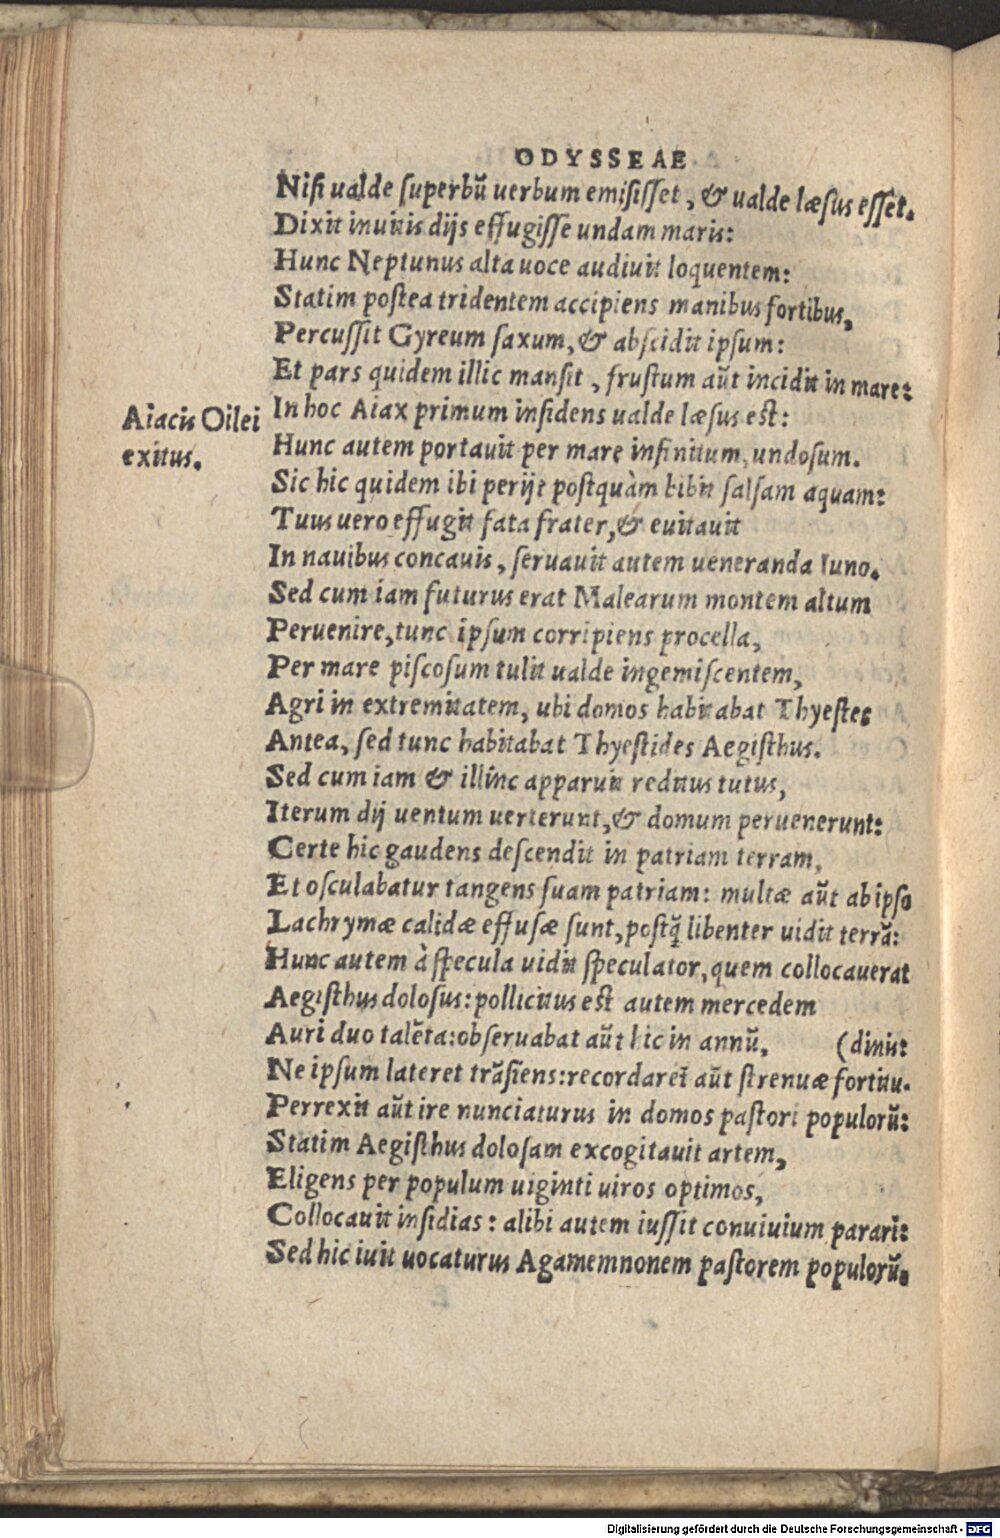 ODYSSEAE
Nisi ualde superbũ uerbum emisisset, & ualde læsus esset.
Dixit inuitis dijs effugisse undam maris:
Hunc Neptunus alta uoce audiuit loquentem:
Statim postea tridentem accipiens manibus fortibus,
Percussit Gyreum saxum, & abscidit ipsum:
Et pars quidem illic mansit, frustum aũt incidit in mare:
Aiacis Oilei
exitus.
In hoc Aiax primum insidens ualde læsus est:
Hunc autem portauit per mare infinitum, undosum.
Sic hic quidem ibi perijt postquàm bibit salsam aquam:
Tuus uero effugit fata frater, & euitauit
In nauibus concauis, seruauit autem ueneranda Iuno.
Sed cum iam futurus erat Malearum montem altum
Peruenire, tunc ipsum corripiens procella,
Per mare piscosum tulit ualde ingemiscentem,
Agri in extremitatem, ubi domos habitabat Thyestes
Antea, sed tunc habitabat Thyestides Aegisthus.
Sed cum iam & illinc apparuit reditus tutus,
Iterum dij uentum uerterunt, & domum peruenerunt:
Certe hic gaudens descendit in patriam terram,
Et osculabatur tangens suam patriam: multæ aũt ab ipso
Lachrymæ calidæ effusæ sunt, postq̃ libenter uidit terrã:
Hunc autem à specula uidit speculator, quem collocauerat
Aegisthus dolosus: pollicitus est autem mercedem
Auri duo talẽta: obseruabat aũt hic in annũ, (dinis:
Ne ipsum lateret trãsiens: recordaret aũt strenuæ fortitu-
Perrexit aũt ire nunciaturus in domos pastori populorũ:
Statim Aegisthus dolosam excogitauit artem,
Eligens per populum uiginti uiros optimos,
Collocauit insidias: alibi autem iussit conuiuium parari:
Sed hic iuit uocaturus Agamemnonem pastorem populorũ,
Digitalisierung gefördert durch die Deutsche Forschungsgemeinschaft - DFG